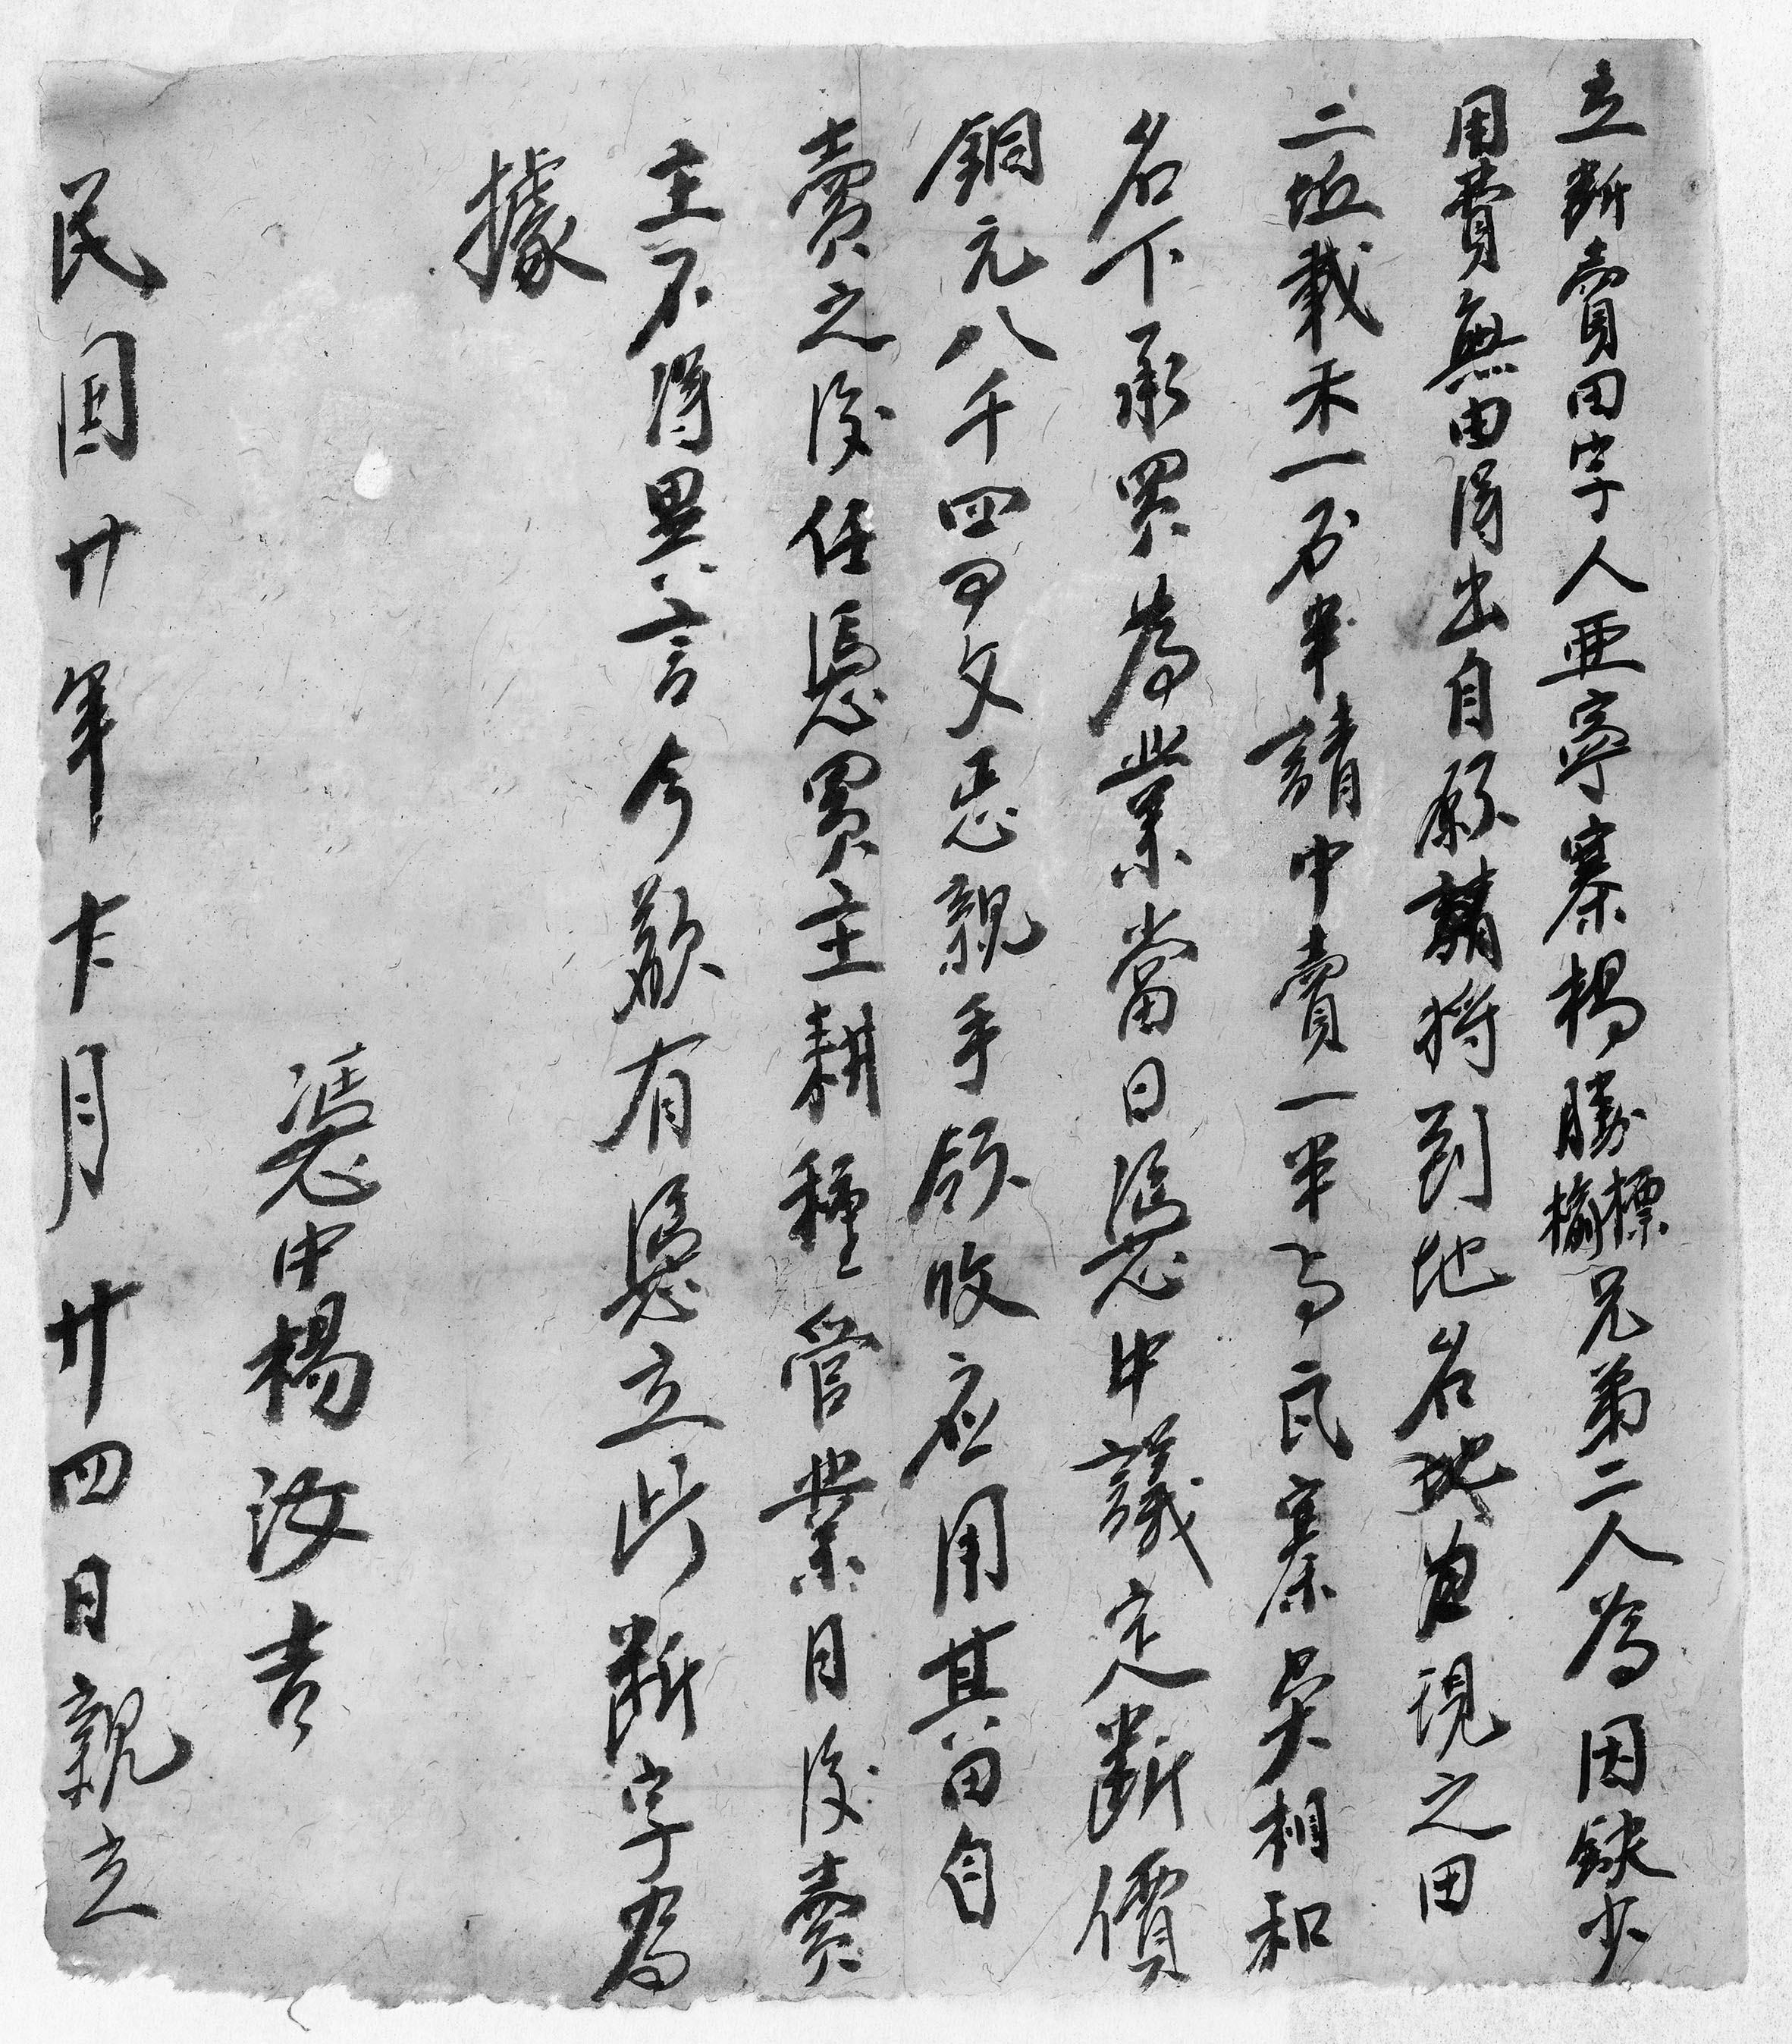 立断賣田字人亜寧寨楊勝標榆兄弟二人為因缺少
用費無由得出自愿請將到地名地自現之田
二坵載禾一石半請中賣一半与瓦寨吳相和
名下承買為業當日憑中議定断價
銅元八千四百文悉親手領收应用其田自
賣之後任憑買主耕種管業日後賣
主不得異言今欲有憑立此断字為
據
憑中楊汝吉
民囯廿年十二月廿四日親立